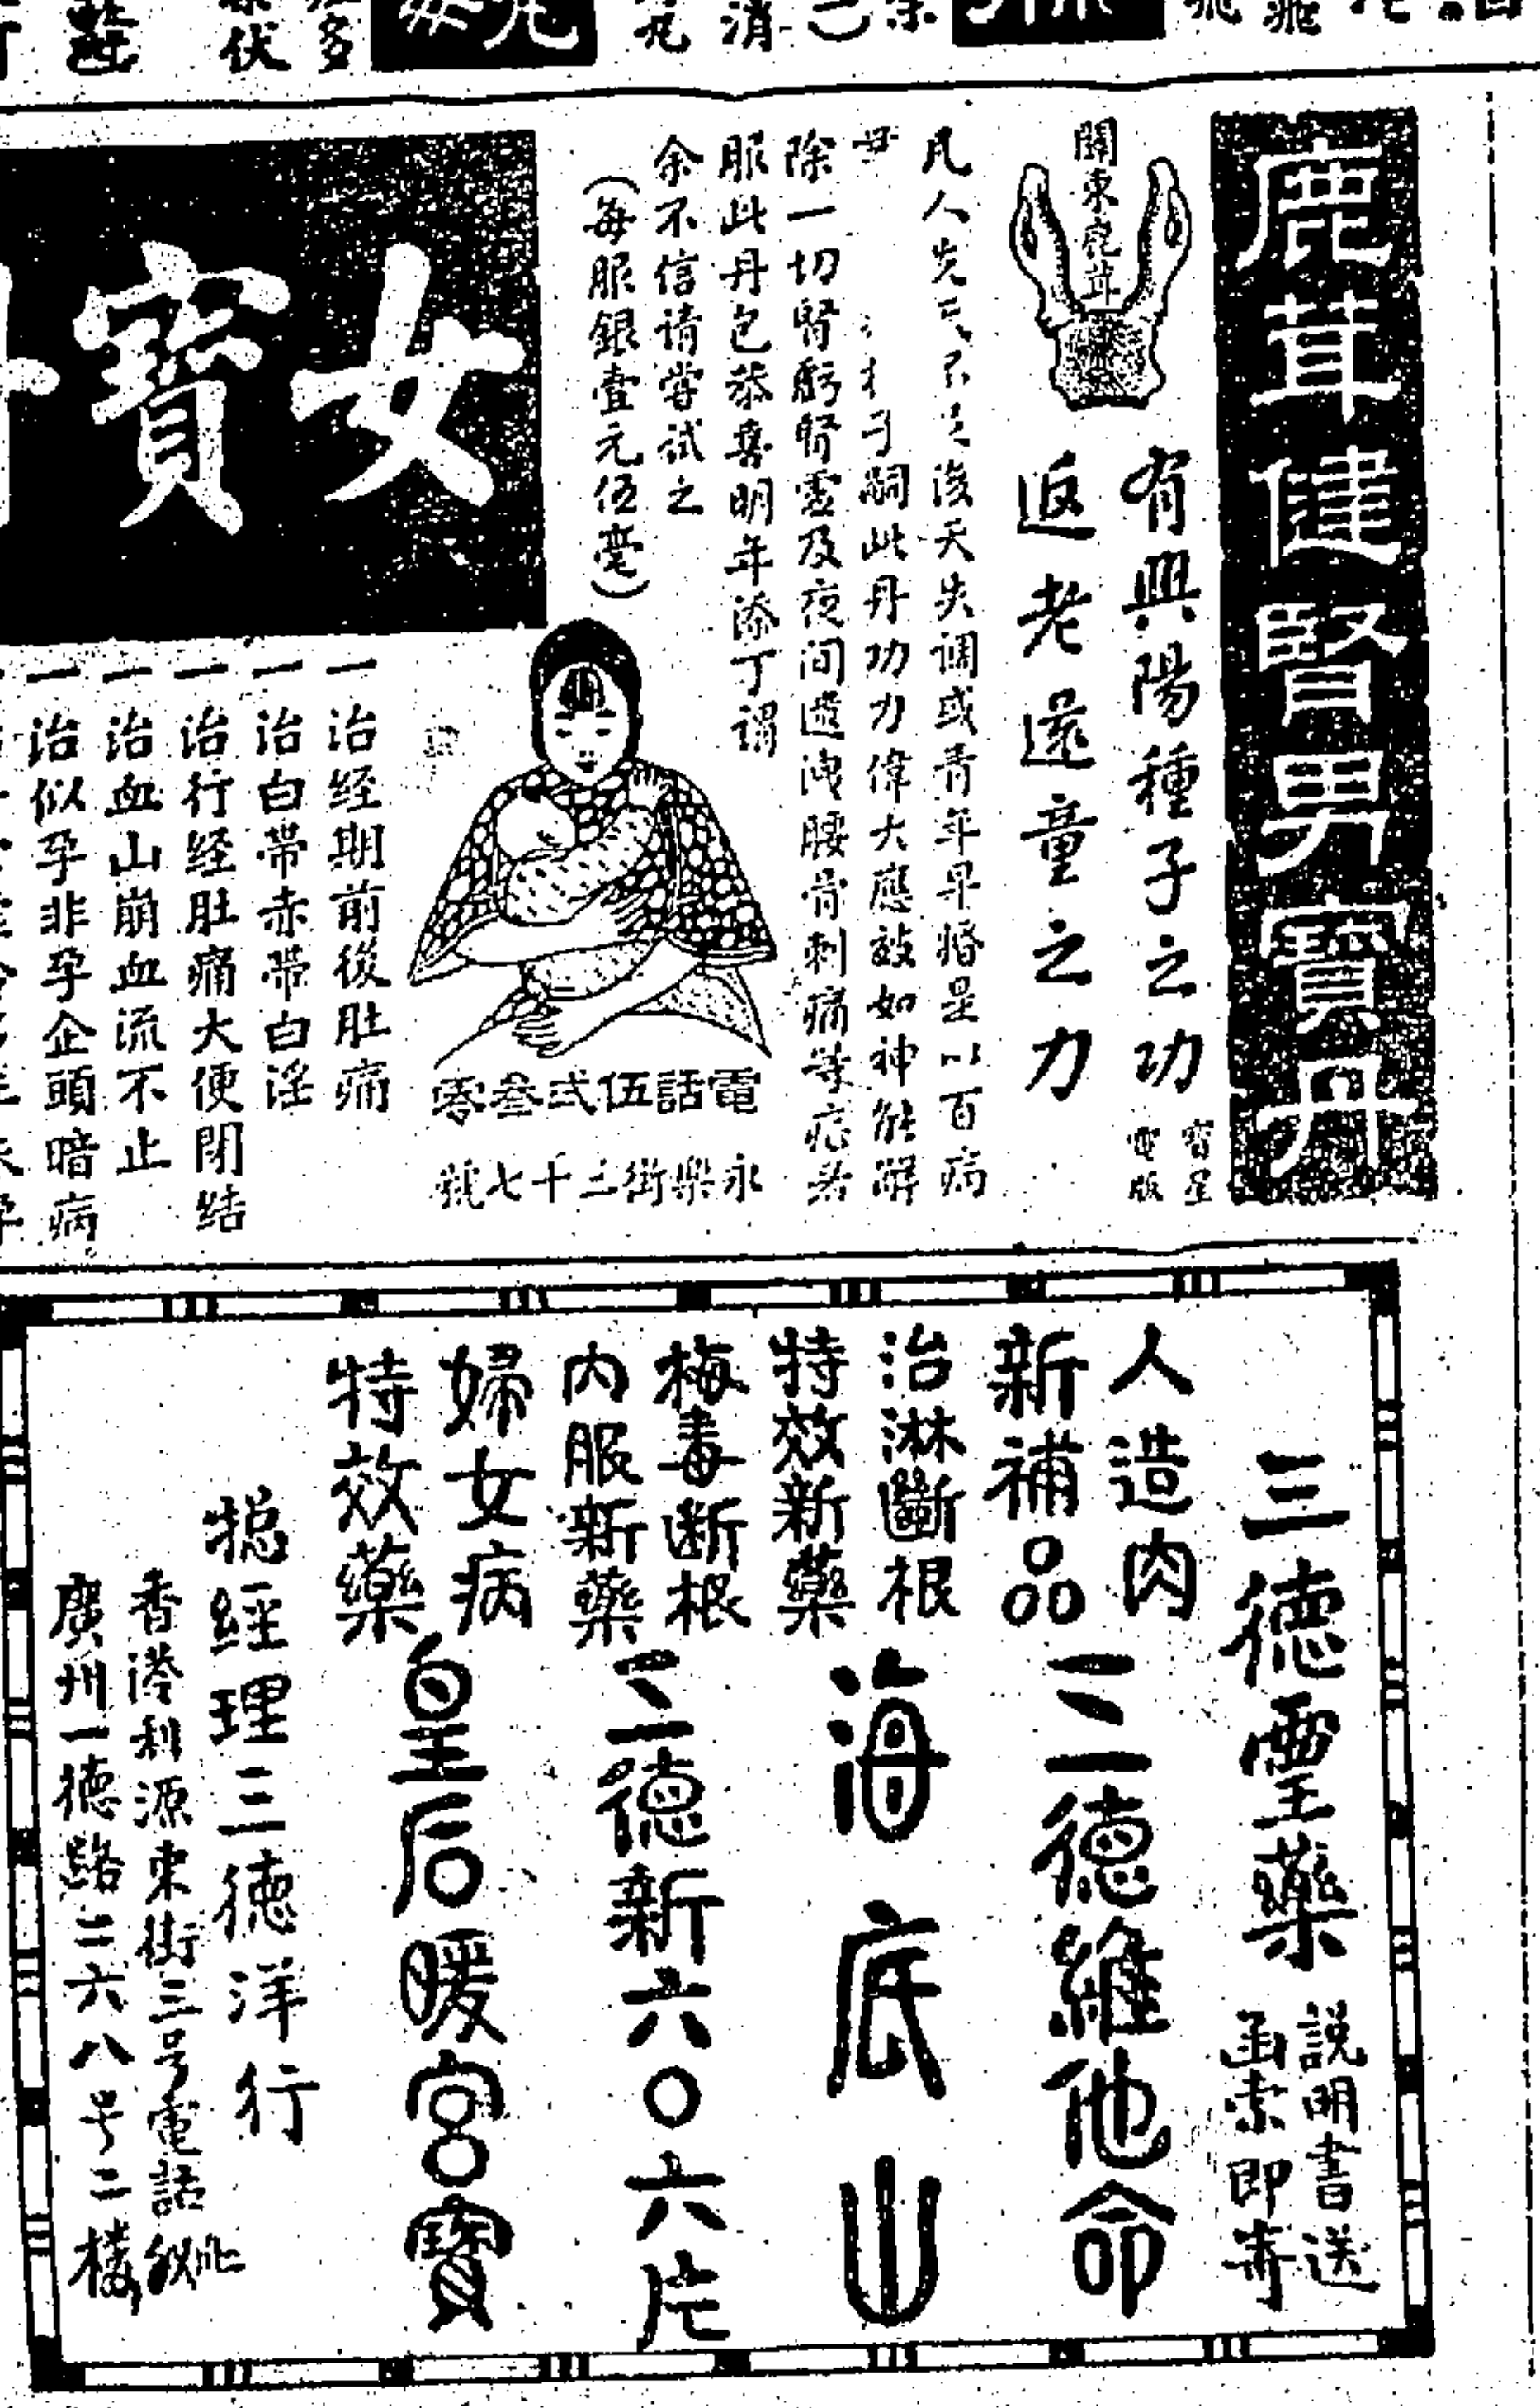 鹿茸健腎男寶丹
關東鹿茸
有興陽種子之功
返老還童之力
寶星
電版
凡人先天不足後天失調或青年早婚是以百病
子嗣此丹功力偉大應效如神能解
除一切腎虧腎虛及夜间遺洩腰骨刺痛等症若
服此丹包恭喜明年添丁謂
余不信请嘗试之
(每服銀壹元伍毫)
電話伍式叁零
永樂街三十七號
女寶
一治经期前後肚痛
一治白帶赤帶白淫
一治行经肚痛大便閉结
一治血山崩血流不止
一治似孕非孕企頭暗病
三德灵藥
說明書送
函索即寄
人造肉
新補品
三德維他命
治淋斷根
特效新藥
海底山
梅毒断根
内服新藥
三德新六〇六片
婦女病
特效藥
皇后暖宮寶
總經理三德洋行
香港利源東街三号電話
廣州一德路二六八号二樓